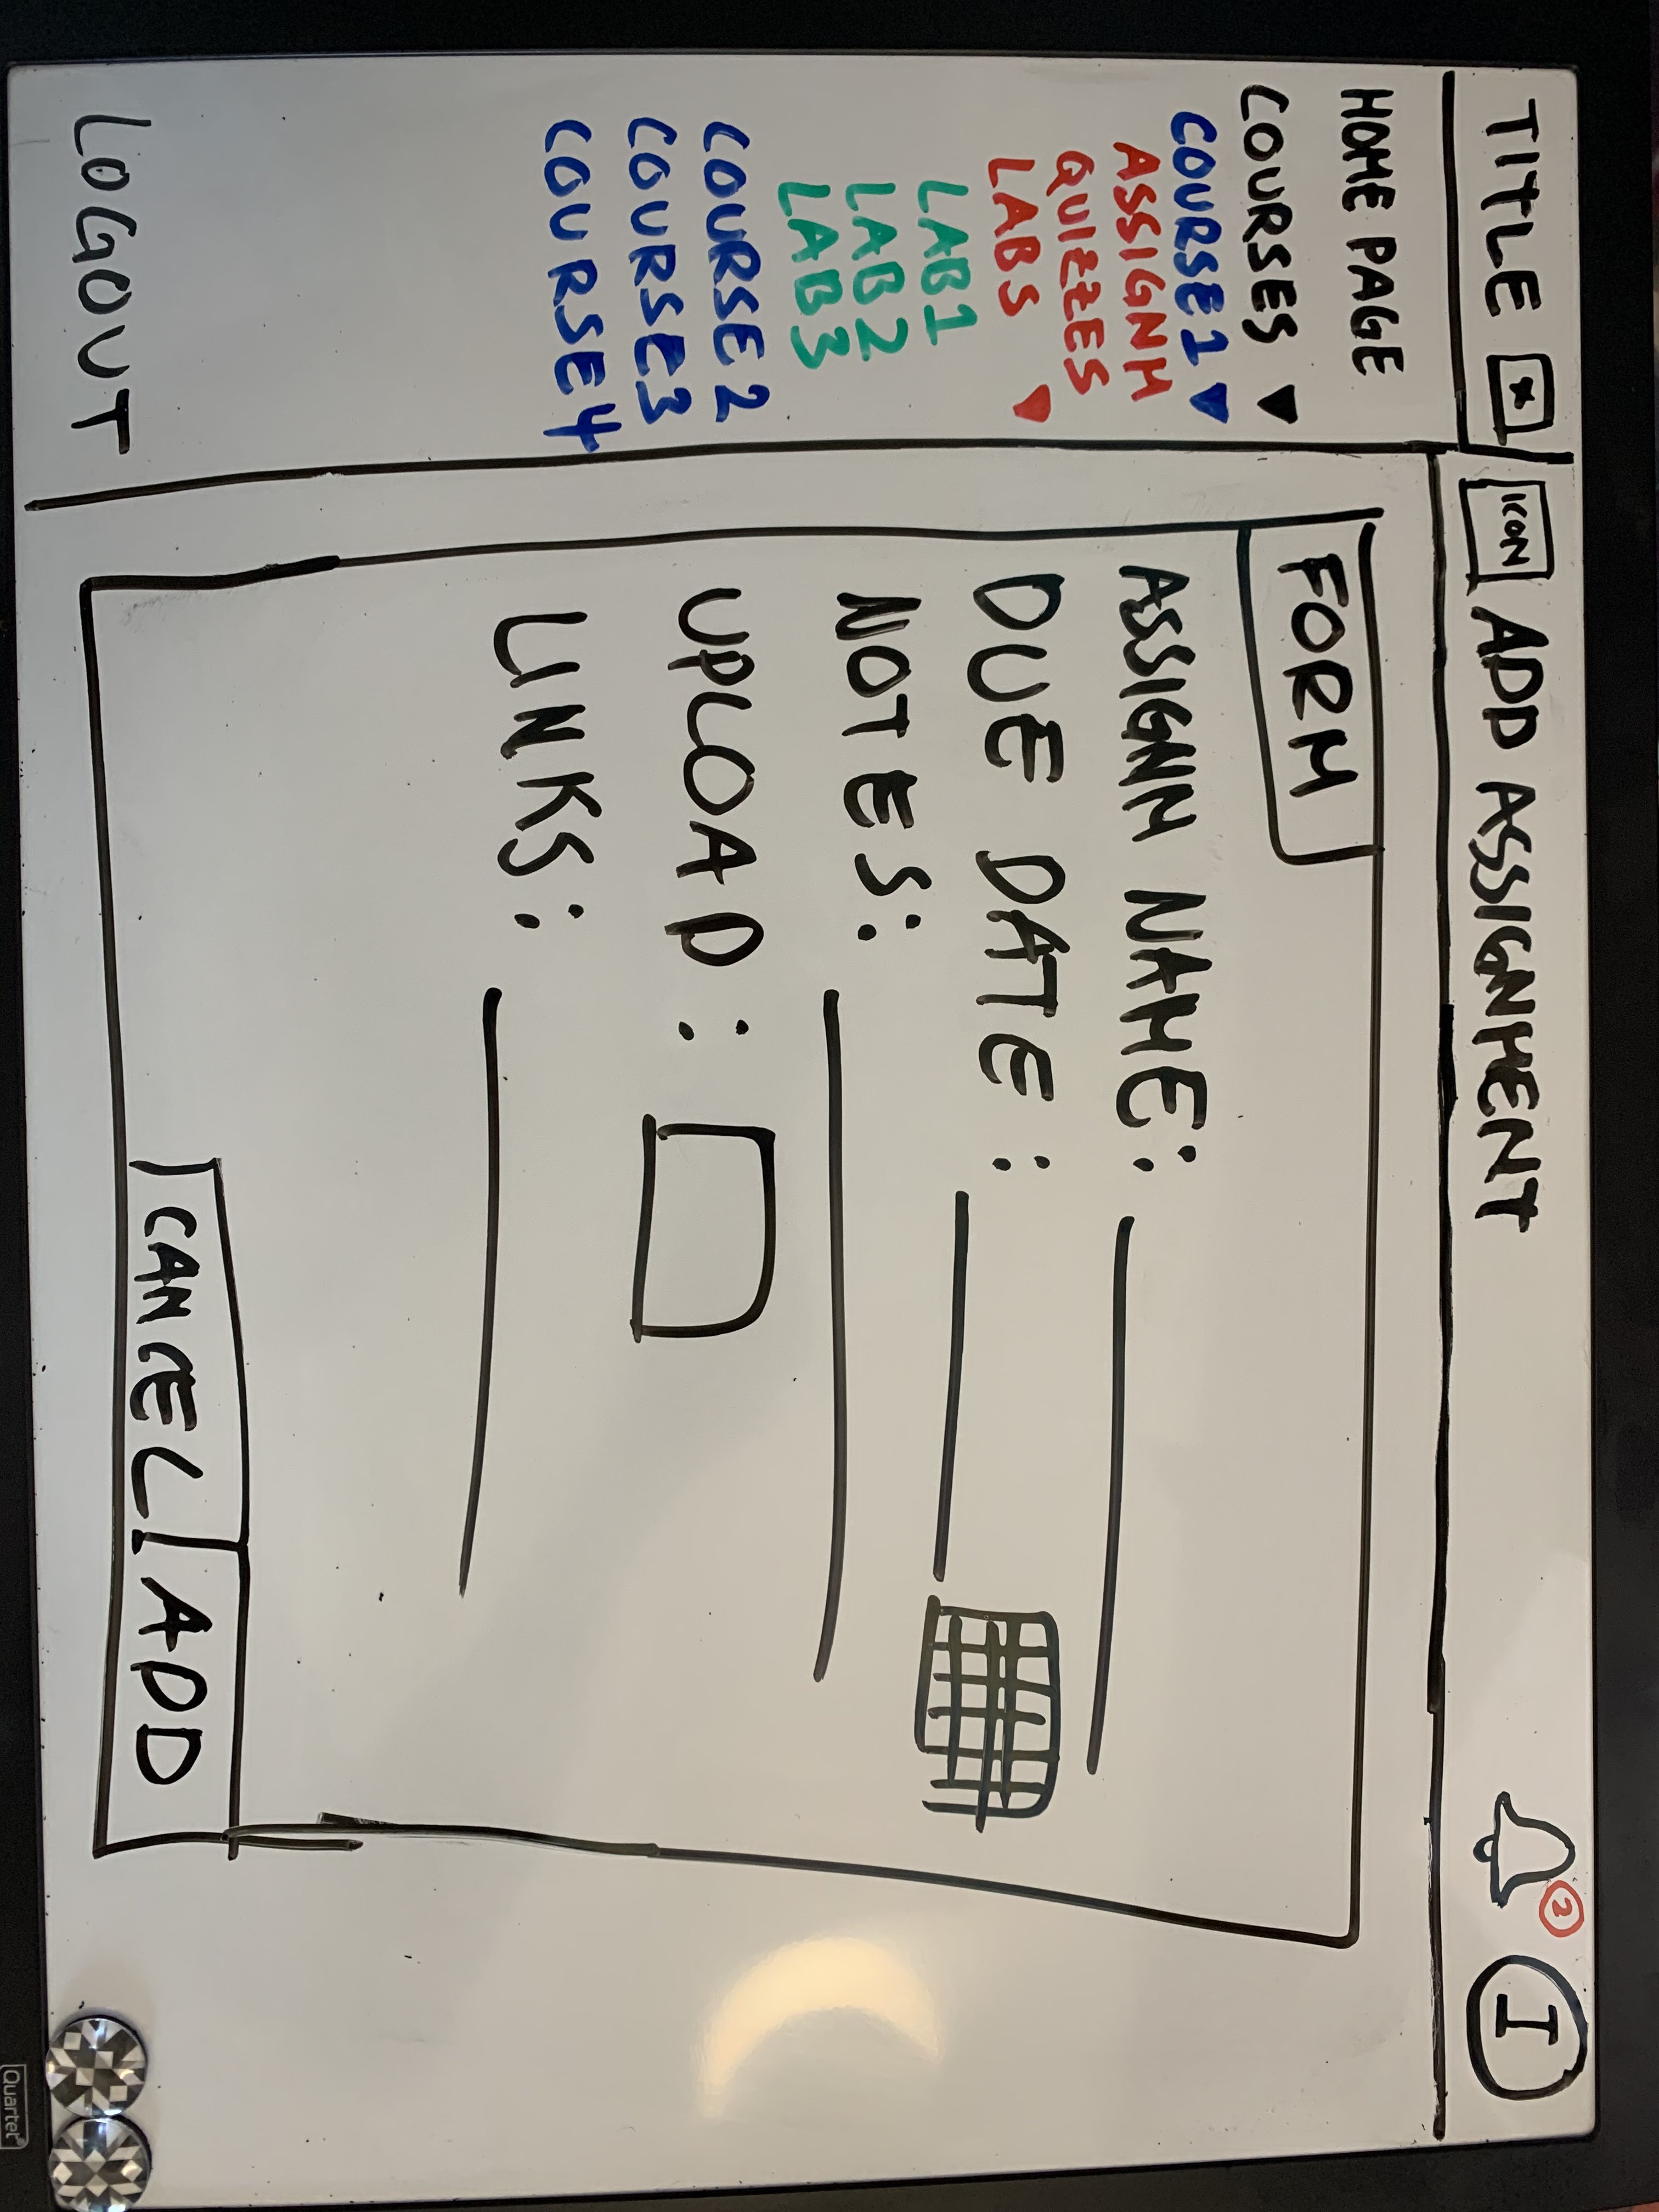 TITLE
ICON ADD ASSIGNMENT
2
I
HOME PAGE
COURSES
COURSE 1
ASSIGNM
QUIZZES
LABS
LAB1
LAB2
LAB3
COURSE 2
COURSE3
COURSE4
LOGOUT
FORM
ASSIGNM NAME:
DUE DATE:
NOTES:
UPLOAD:
LINKS:
CANCEL ADD
Quartet